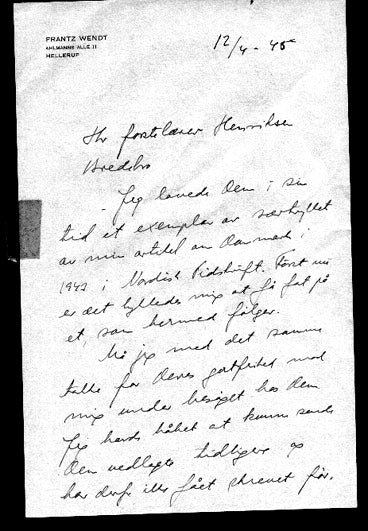 FRANTZ WENDT
AHLMANNS ALLE 11
HELLERUP
12/4 - 45
Hr førstelærer Henriksen
Bredebro
Jeg lovede Dem i sin
tid et exemplar av særtrykket
av min artikel om Danmark i
1943 i Nordisk Tidskrift. Først nu
er det lykkedes mig at få fat på
et, som hermed følger.
Må jeg med det samme
takke for Deres gæstfrihed mod
mig under besøget hos Dem
Jeg havde håbet at kunne sende
Dem vedlagte tidligere og
har derfor ikke fået skrevet før.